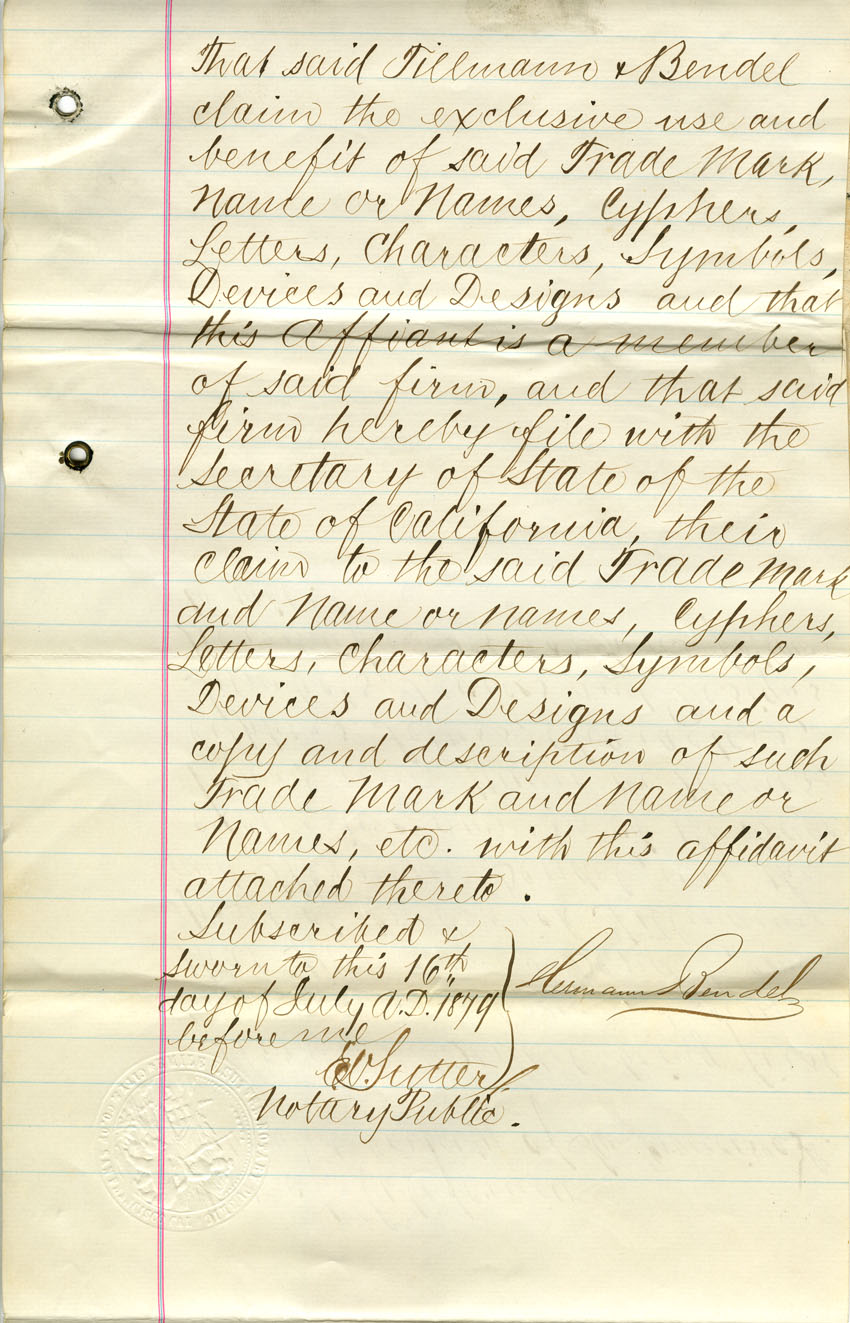 That said Tillmann & Bendel
claim the exclusive use and
benefit of said Trade Mark,
Name or Names, Cyphers,
Letters, Characters, Symbols,
Devices and Designs and that
this Affiant is a member
of said firm, and that said
firm hereby file with the
Secretary of State of the
State of California, their
claim to the said Trade Mark
and Name or names, Cyphers,
Letters, Characters, Symbols,
Devices and Designs and a
copy and description of such
Trade Mark and Name or
Names, etc. with this affidavit
attached thereto.
Subscribed &
sworn to this 16th
day of July A.D. 1879
before me
Hermann Bendel
Sutter
Notary Public.